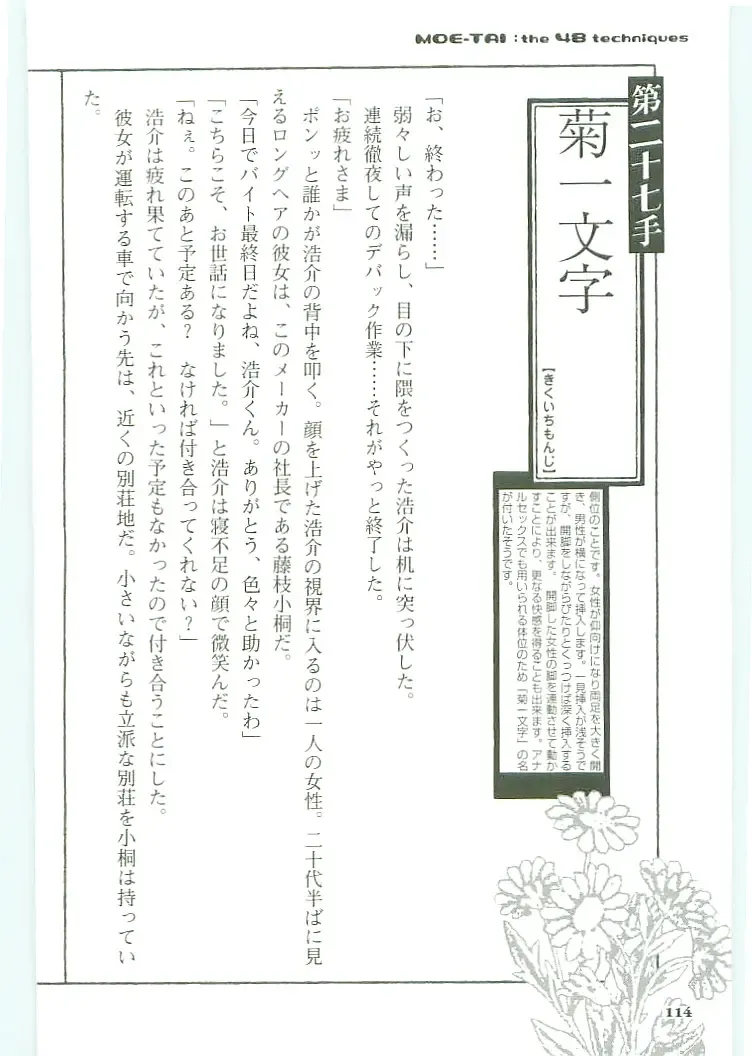 MOE-TAI : the 48 techniques
第二十七手
菊一文字
【きくいちもんじ】
側位のことです。女性が仰向けになり両足を大きく開
き、男性が横になって挿入します。一見挿入が浅そうで
すが、開脚をしながらぴたりとくっつけば深く挿入する
ことが出来ます。開脚した女性の脚を連動させて動か
すことにより、更なる快感を得ることも出来ます。アナ
ルセックスでも用いられる体位のため「菊一文字」の名
が付いたそうです。
「お、終わった……」
弱々しい声を漏らし、目の下に隈をつくった浩介は机に突っ伏した。
連続徹夜してのデバック作業……それがやっと終了した。
「お疲れさま」
ポンッと誰かが浩介の背中を叩く。顔を上げた浩介の視界に入るのは一人の女性。二十代半ばに見
えるロングヘアの彼女は、このメーカーの社長である藤枝小桐だ。
「今日でバイト最終日だよね、浩介くん。ありがとう、色々と助かったわ」
「こちらこそ、お世話になりました。」と浩介は寝不足の顔で微笑んだ。
「ねぇ。このあと予定ある？　なければ付き合ってくれない？」
浩介は疲れ果てていたが、これといった予定もなかったので付き合うことにした。
彼女が運転する車で向かう先は、近くの別荘地だ。小さいながらも立派な別荘を小桐は持ってい
た。
114